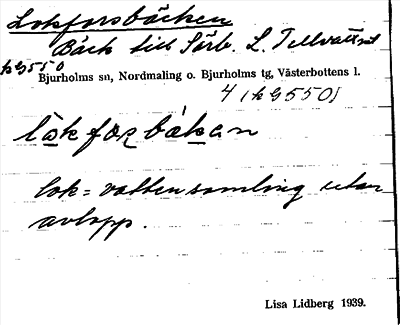 Lokforsbäcken
Bäck till Sörb. L. Tellvattnet
kg550
Bjurholms sn, Nordmaling o. Bjurholms tg, Västerbottens l.
4 (kg550)
lòkforbàkan
lok = vattensamling utan
avlopp.
Lisa Lidberg 1939.